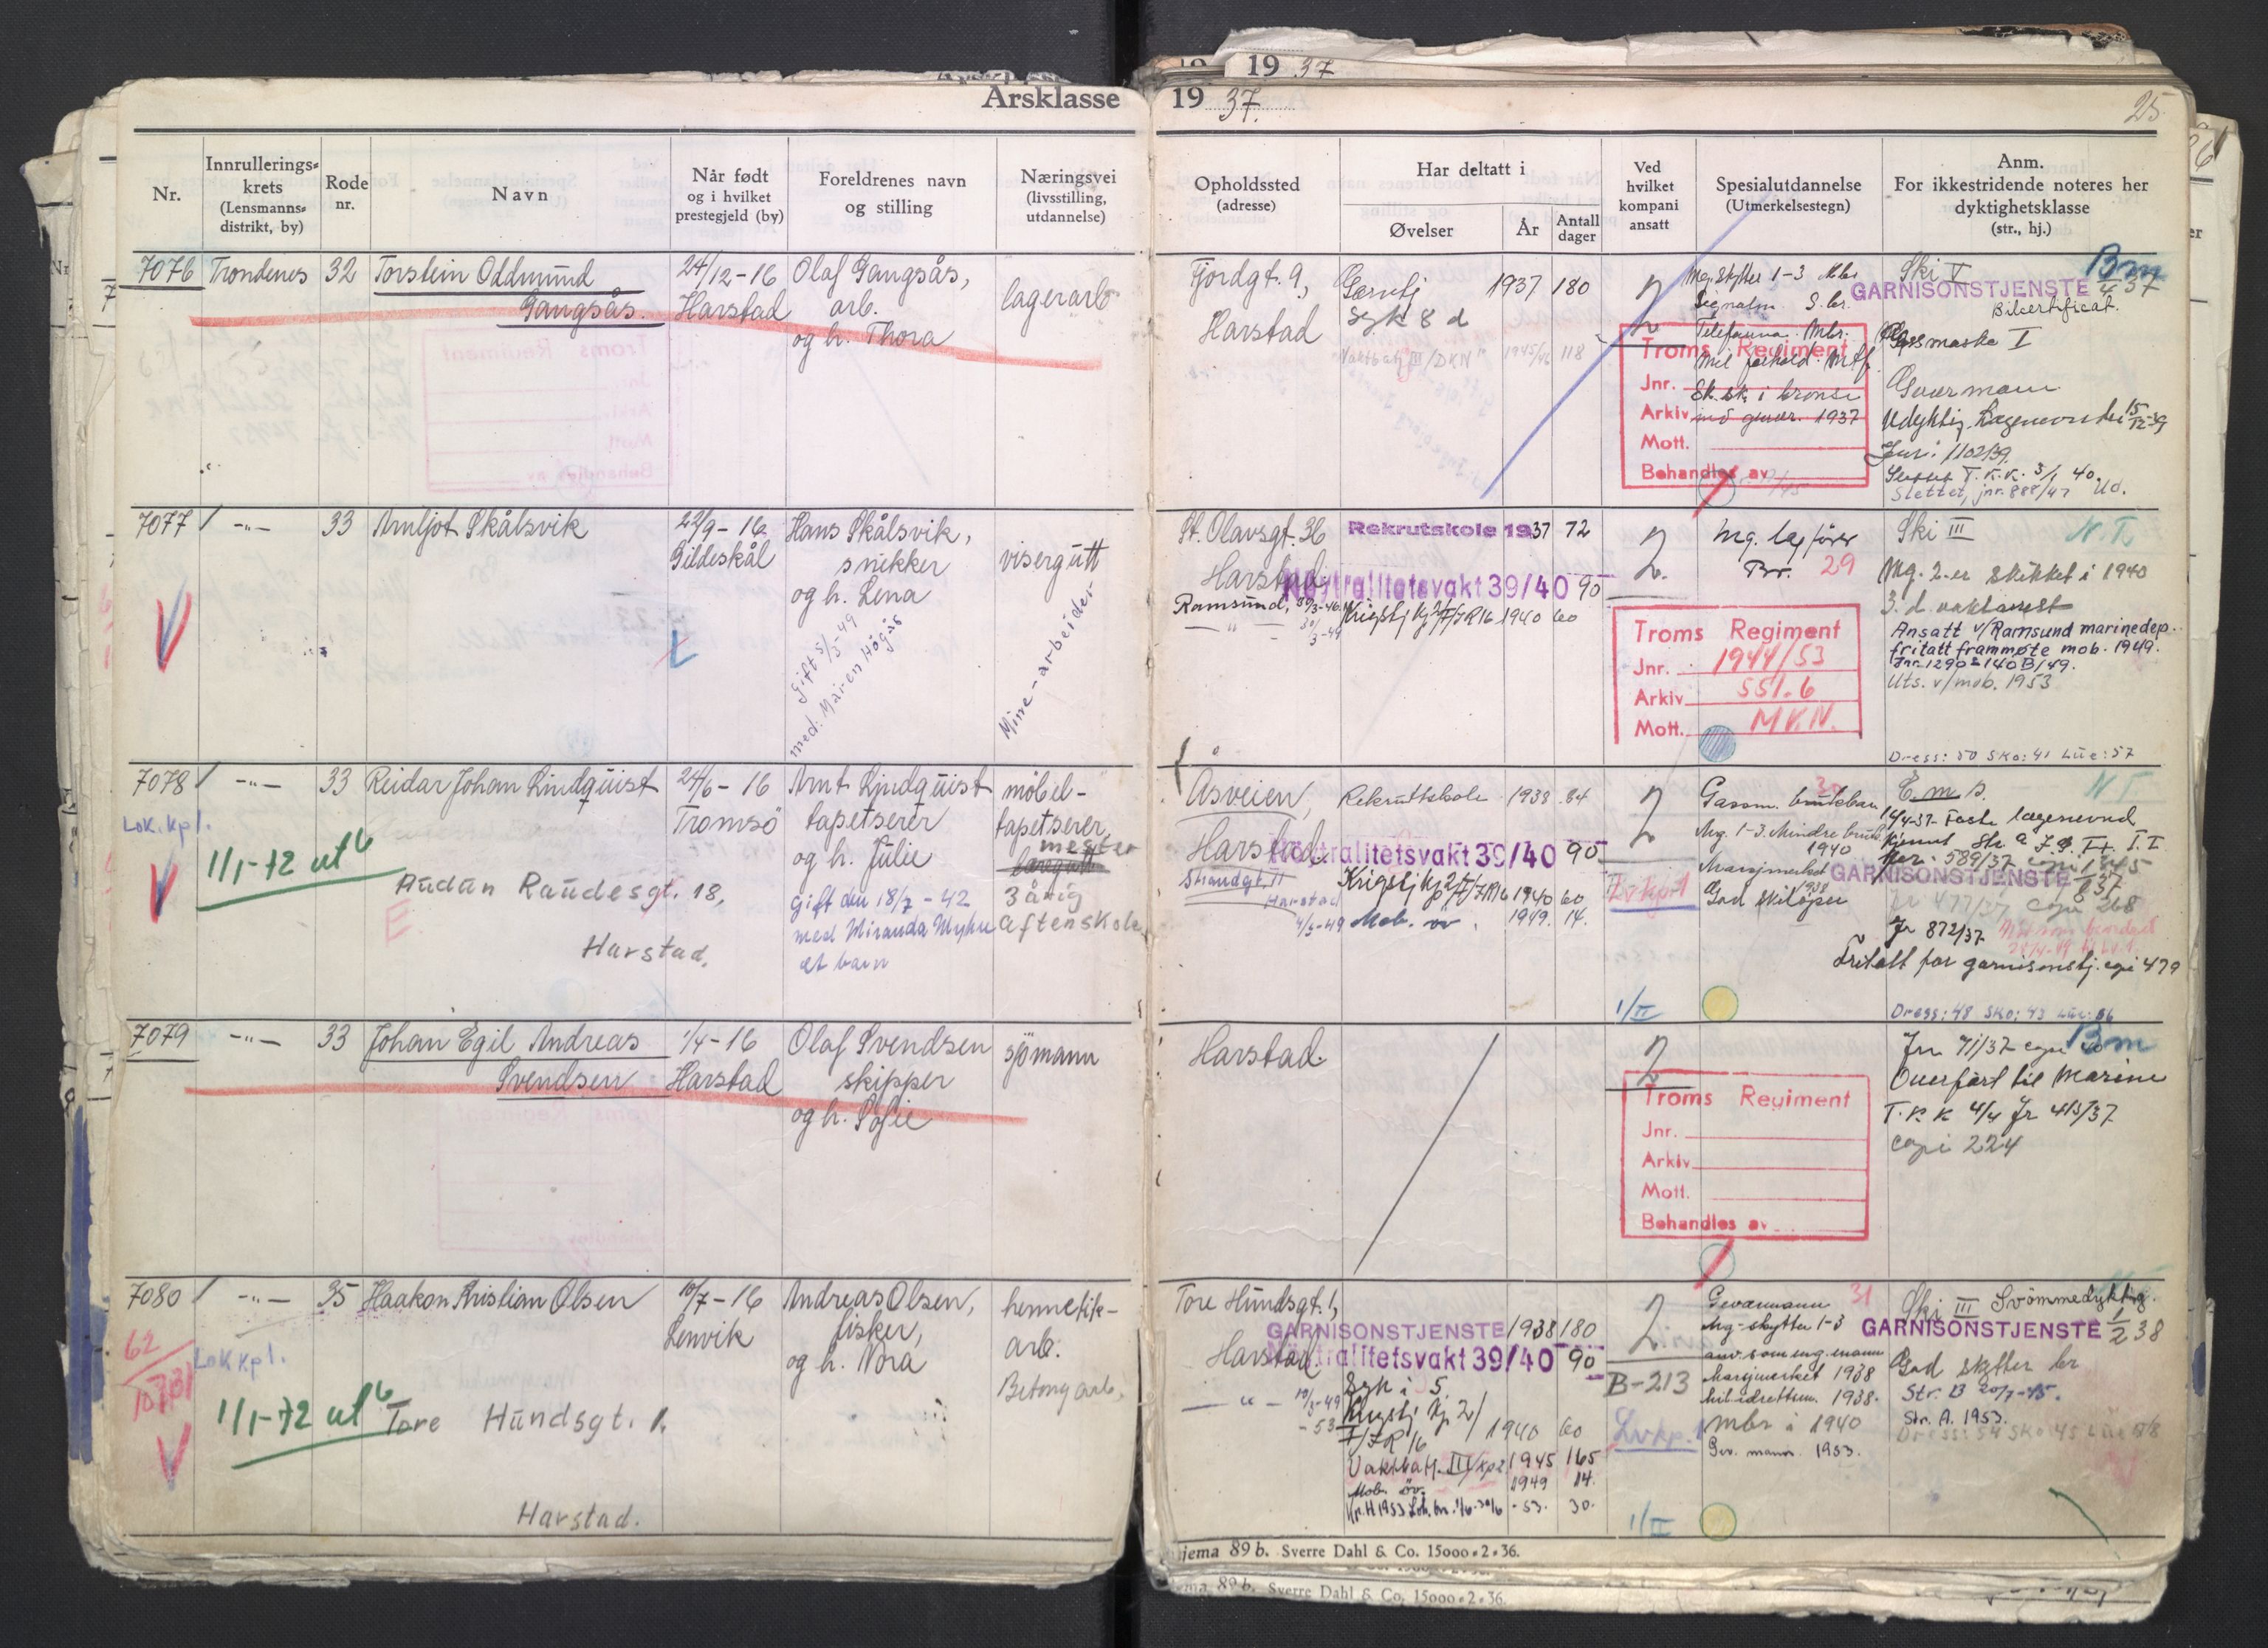 19 37
Årsklasse
19 37.
25
Nr.
Innrullerings-
krets
(Lensmanns-
distrikt, by)
Rode
nr.
Navn
Når født
og i hvilket
prestegjeld (by)
Foreldrenes navn
og stilling
Næringsvei
(livsstilling,
utdannelse)
Opholdssted
(adresse)
Har deltatt i
Øvelser
År
Antall
dager
Ved
hvilket
kompani
ansatt
Spesialutdannelse
(Utmerkelsestegn)
Anm.
For ikkestridende noteres her
dyktighetsklasse
(str., hj.)
7076 Trondenes 32 Torstein Oddmund
Gangsås.
24/12-16
Harstad
Olaf Gangsås,
arb.
og h. Thora
lagerarb
Fjordgt. 9,
Harstad
Garntj 1937 180
Syk 8 d
1945/46 118
2
Mg. skytter 1-3 Mbr
Signalm. S. br.
Mbr.
Sk.sk. i bronse
1937
Troms Regiment
Jnr.
Arkiv
Mott.
Behandles av
Ski V
Bm
GARNISONSTJENSTE 37
Bilcertificat.
Gassmaske I
Gevermann
Udyktig. Lægenevnden 15/12-39
Jnr: 1102/39.
T.K.K. 3/1 40.
Slettet, jnr. 888/47 Ud.
7077 / -"- 33 Arnljot Skålsvik
22/9-16
Gildeskål
Hans Skålsvik,
snekker
og h. Lena
Gift 5/3-49
med: Maren Høgås
visergutt
Mine-arbeider
St. Olavsgt. 36
Harstad
Ramsund,
Rekrutskole 1937 72
Nøytralitetsvakt 39/40 90
Krigstj Kp 2/I/IR16 1940 60
2.
Mg. lagfører
Br. 29
Troms Regiment
Jnr. 1944/53
Arkiv 551.6
Mott. M.K.N.
Ski III
N.T.
Mg. 2-er skikket i 1940
3. d. vaktarrest
Ansatt v/Ramsund marinedep.
fritatt frammøte mob. 1949.
Uts. v/mob. 1953
Dress: 50 Sko: 41 Lue: 57
7078 / -"- 33 Reidar Johan Lindquist
24/6-16
Tromsö
Arnt Lindquist
tapetserer
og h. Julie
Gift den 18/7-42
med Miranda Myhre
et barn
möbel-
tapetserer,
mester
3 årig
aftenskole
Lok. kpl.
1/1-72 ut
Audun Raudesgt. 18,
E
Harstad.
Åsveien,
Harstad
Strandgt. 11
Harstad
4/3-49
Rekruttskole 1938 84
Nøytralitetsvakt 39/40 90
Krigstj Kp 2/I/IR16 1940 60
Mob. øv. 1949. 14.
2
1/II
Gassm. brukbar
Mg. 1-3. Mindre bruk
1940
Marsjmerket
1938
God skilöper
N T
GARNISONSTJENSTE 37
589/37
Jr 872/37
Fritatt for garnisonstj. copi 479
Dress: 48 Sko: 43 Lue: 56
7079 -"- 33 Johan Egil Andreas
Svendsen
1/4-16
Harstad
Olaf Svendsen
skipper
og h. Sofie
sjömann
Harstad.
2
Troms Regiment
Jnr.
Arkiv
Mott.
Behandles av
Bm
Jnr 71/37 copi
Overfört til Marine
T.K.K 4/4 Jr 413/37
copi 224
7080 / -"- 35 Haakon Kristian Olsen
10/7-16
Lenvik
Andreas Olsen,
fisker,
og h. Nora
hermetik-
arb.
Betongarb.
62
Lok kpl.
1/1-72 ut
Tore Hundsgt. 1.
Harstad.
Tore Hundsgt. 1,
Harstad.
GARNISONSTJENSTE 1938 180
Nøytralitetsvakt 39/40 90
Syk i 5.
Krigstj Kp 2/
I/IR 16 1940 60
Vaktbatl. III/Kp2 1945 165
Mob. öv. 1949 14.
-53. 30.
2.
B-213
1/II
Geværmann 31
Mg-skytter 1-3
anv. som mg. mann
Marsjmerket 1938
Mil. idrettsm. 1938.
Mbr i 1940
Gev. mann. 1953.
Ski III Svömmedyktig.
GARNISONSTJENSTE 1/2 38
God skytter br
Str. B 20/7-45.
Str. A. 1953.
Dress: 54 Sko 45 Lue 58
Skjema 89 b. Sverre Dahl & Co. 15000-2-36.
89 b. Sverre Dahl & Co. 15000-2-36.